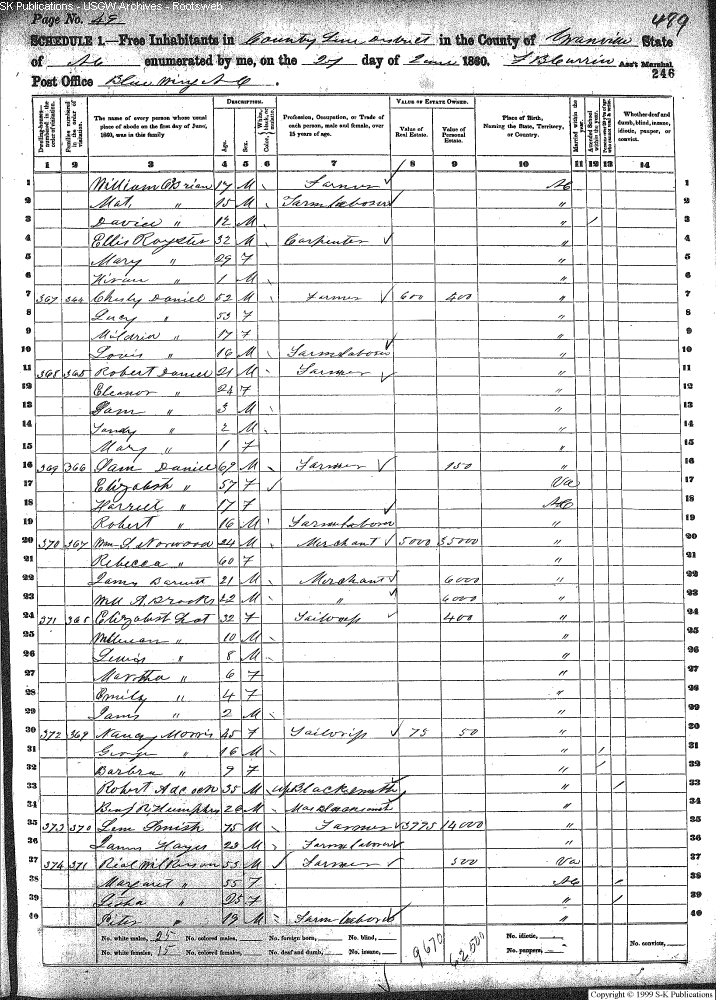 SK Publications - USGW Archives - Rootsweb
Page No. 48
479
SCHEDULE 1.—Free Inhabitants in County Line District in the County of Granville State
of NC enumerated by me, on the day of June 1860. Ass't Marshal.
246
Post Office Blue Wing NC.
Dwelling-houses—numbered in the order of visitation.
Families numbered in the order of visitation.
The name of every person whose usual place of abode on the first day of June, 1860, was in this family
DESCRIPTION.
Age.
Sex.
Profession, Occupation, or Trade of each person, male and female, over 15 years of age.
VALUE OF ESTATE OWNED.
Value of Real Estate.
Value of Personal Estate.
Place of Birth, Naming the State, Territory, or Country.
Married within the year.
Attended School within the year.
Whether deaf and dumb, blind, insane, idiotic, pauper, or convict.
1 2 3 4 5 6 7 8 9 10 11 12 13 14
1 William OBrian 17 M Farmer NC 1
2 Mat. " 15 M Farm laborer " 2
3 David " 12 M " / 3
4 Ellis Royster 32 M Carpenter " 4
5 Mary " 29 F " 5
6 " 1 M " 6
7 367 364 Chesly Daniel 52 M Farmer 600 400 " 7
8 Lucy " 53 F " 8
9 " 17 F " 9
10 Lovis " 16 M Farm laborer " 10
11 368 365 Robert Daniel 21 M Farmer " 11
12 Eleanor " 24 F " 12
13 Sam " 3 M " 13
14 " 2 M " 14
15 Mary " 1 F " 15
16 369 366 Sam Daniel 69 M Farmer 150 " 16
17 Elizabeth " 57 F Va 17
18 Harriet " 17 F NC 18
19 Robert " 16 M Farm laborer " 19
20 370 367 Wm Norwood 24 M Merchant 5000 35000 " 20
21 Rebecca " 60 F " 21
22 James Barnett 21 M Merchant 6000 " 22
23 Brooks 22 M " 6000 " 23
24 371 368 Elizabeth 32 F 400 " 24
25 " 10 M " 25
26 Lewis " 8 M " 26
27 Martha " 6 F " 27
28 Emily " 4 F " 28
29 James " 2 M " 29
30 372 369 Nancy Morris 45 F 75 50 " 30
31 George " 16 M " / 31
32 Barbra " 9 F " / 32
33 Robert Adcock 35 M Blacksmith " / 33
34 Benj R Humphrs 26 M " 34
35 373 370 Lem Smith 75 M Farmer 3775 14000 " 35
36 James Hayes 23 M Farm laborer " 36
37 374 371 Wilkerson 53 M Farmer 500 Va 37
38 Margaret " 55 F NC / 38
39 " 25 F " / 39
40 Peter " 19 M Farm laborer " 40
No. white males, 25 No. colored males, No. foreign born, No. blind, No. idiotic, No. convicts,
No. white females, 15 No. colored females, No. deaf and dumb, No. insane, No. paupers,
9670 62500
Copyright © 1999 S-K Publications